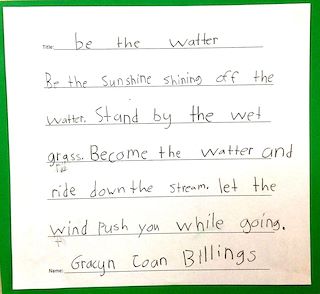 Title: be the watter
Be the Sunshine Shining off the
watter. Stand by the wet
grass. Become the watter and
ride down the Stream. let the
wind Push you while going.
Name: Gracyn Coan Billings